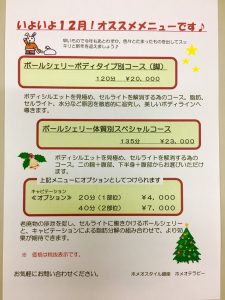 いよいよ12月!オススメメニューです♪
ポールシェリーボディタイプ別コース（脚）
120分 ¥20,000
ボディシルエットを見極め、セルライトを解消する為のコース。脂肪、
セルライト、水分など原因を徹底的に追究し、美しいボディラインへ
導きます。
ポールシェリー体質別スペシャルコース
135分 ¥23,000
ボディシルエットを見極め、セルライトを解消する為の
コース。この期一腹部、下半身一
上記メニューにオプションとしてつけられます
キャビテーション
<オプション> 20分（1部位） ¥4,000
40分（2部位） ¥7,000
老廃物の排泄を促し、セルライトに働きかけるポールシェリー
と、キャビテーションによる脂肪分解の組み合わせで、より効
果が期待できます。
※ 価格は税抜表示です。
お気軽にお問い合わせください。
ホメオスタイル銀座 ホメオテラピー